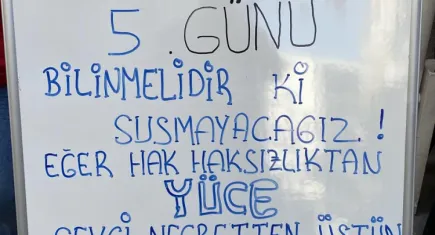 5. GÜNÜ
BİLİNMELİDİR Kİ
SUSMAYACAGIZ.!
EĞER HAK HAKSIZLIKTAN
YÜCE
SEVGİ NEFRETTEN ÜSTÜN